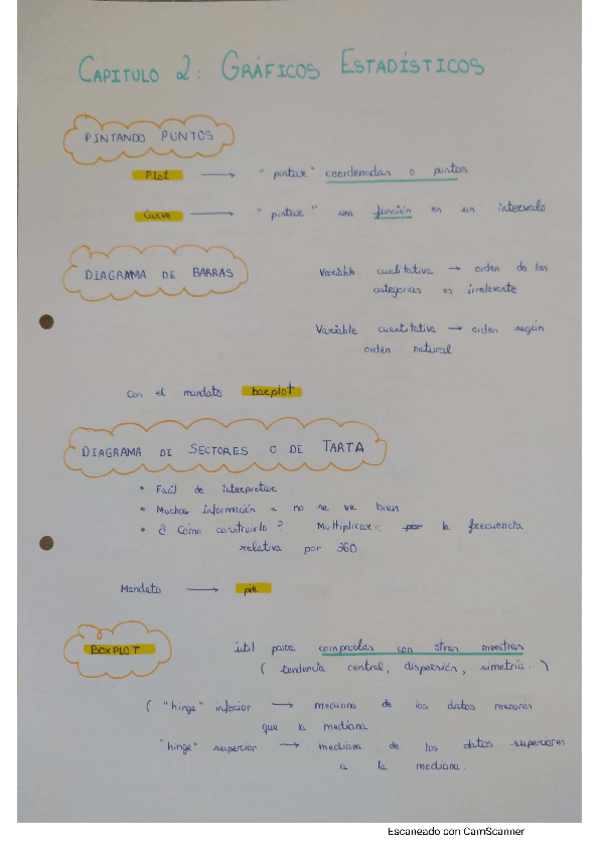 CAPITULO 2: GRÁFICOS ESTADÍSTICOS
PINTANDO PUNTOS
Plot → "pintar" coordenadas o puntos
Curve → "pintar" una función en un intervalo
DIAGRAMA DE BARRAS
Variable cualitativa → orden de las
categorias es irrelevante
Variable cuantitativa → orden según
orden natural
Con el mandato barplot
DIAGRAMA DE SECTORES O DE TARTA
• Facil de interpretar
• Mucha información no se va bien
• ¿Cómo construirlo? Multiplicar por la frecuencia
relativa por 360
Mandato → pie
BOXPLOT
útil para compararlas con otras muestras
(tendencia central, dispersión, simetría...)
( "hinge" inferior → mediana de los datos menores
que la mediana
"hinge" superior → mediana de los datos superiores
a la mediana.
Escaneado con CamScanner